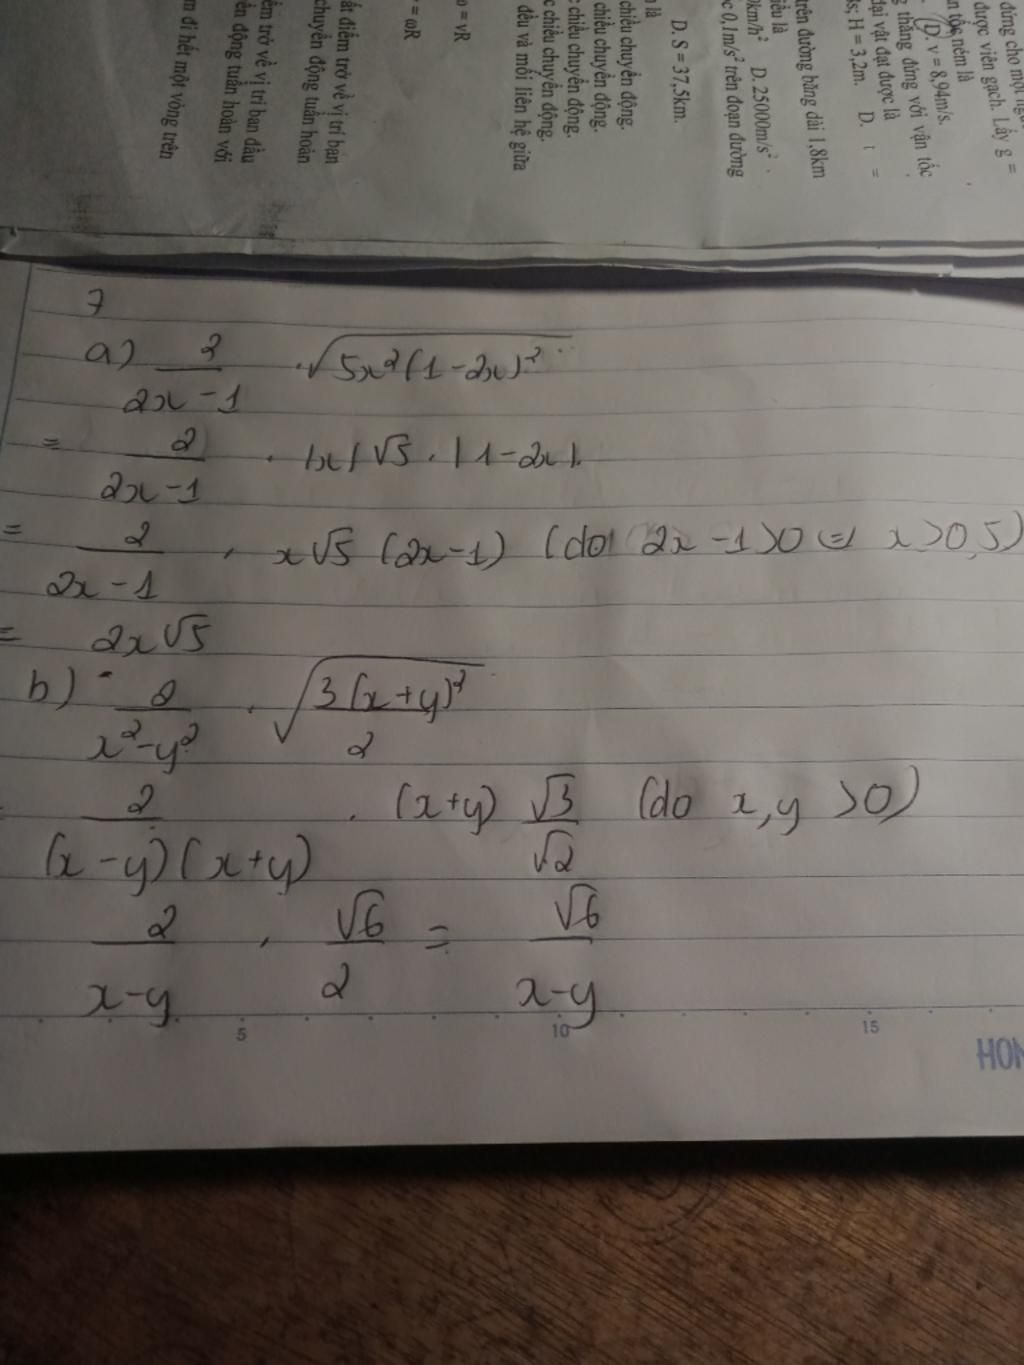 đứng cho một
được viên gạch. Lấy g =
ném là
D. v = 8,94m/s.
thẳng đứng với vận tốc
đại vật đạt được là
H = 3,2m. D. t =
trên đường băng dài 1,8km
D. 25000m/s².
0,1m/s² trên đoạn đường
là
D. S = 37,5km.
chiều chuyển động.
chiều chuyển động.
chiều chuyển động.
chiều chuyển động.
đều và mối liên hệ giữa
= vR
= ωR
điểm trở về vị trí ban
chuyển động tuần hoàn
điểm trở về vị trí ban đầu
động tuần hoàn với
đi hết một vòng trên
7
a) 2/(2x-1) . √(5x²(1-2x)²)
= 2/(2x-1) . |x|√5 . |1-2x|.
= 2/(2x-1) . x√5 (2x-1) (do 2x-1>0 => x>0,5)
= 2x√5
b) 2/(x²-y²) . √(3(x+y)²/2)
2/((x-y)(x+y)) . (x+y) √3/√2 (do x,y >0)
2/(x-y) . √6/2 = √6/(x-y)
5 10 15
HON